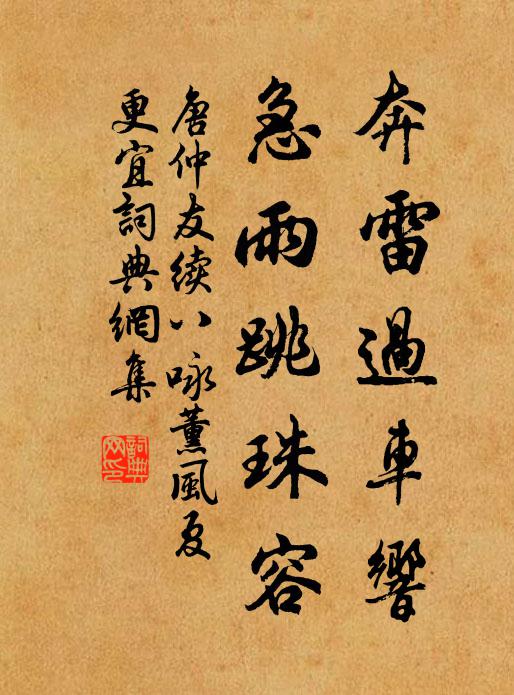 奔雷過車響
急雨跳珠容
唐仲友續八咏薰風夏
更宜詞典網集
詞典
网印